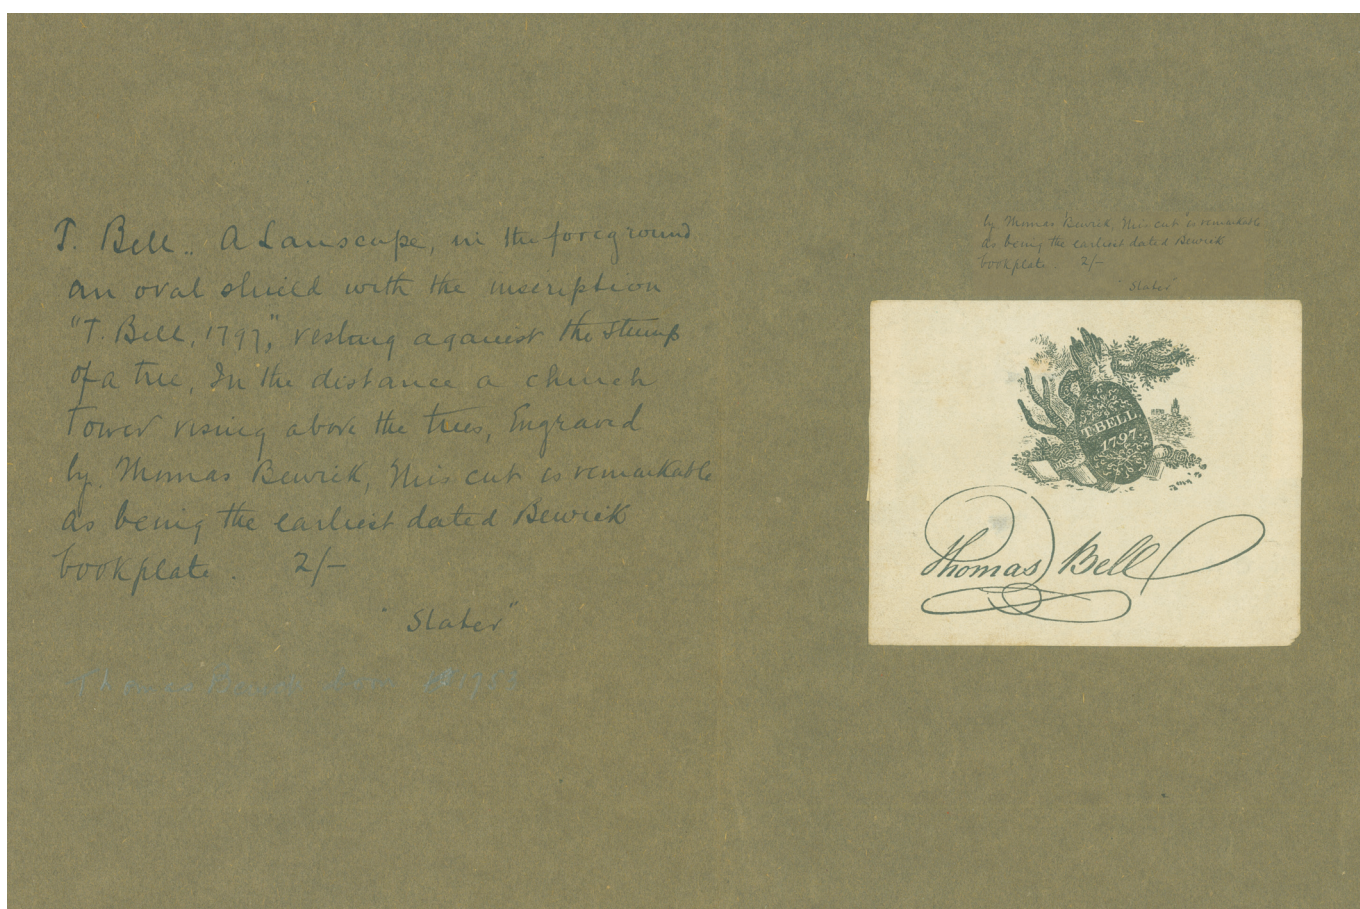 T. Bell.. A Lanscape, in the foreground
an oval shield with the inscription
"T. Bell, 1797," resting against the stump
of a tree, In the distance a church
tower rising above the trees, Engraved
by Thomas Bewick, This cut is remarkable
as being the earliest dated Bewick
bookplate. 2/-
"Slater"
Thomas Bewick born 1753
by Thomas Bewick, This cut is remarkable
as being the earliest dated Bewick
bookplate. 2/-
"Slater"
T.BELL
1797
Thomas Bell